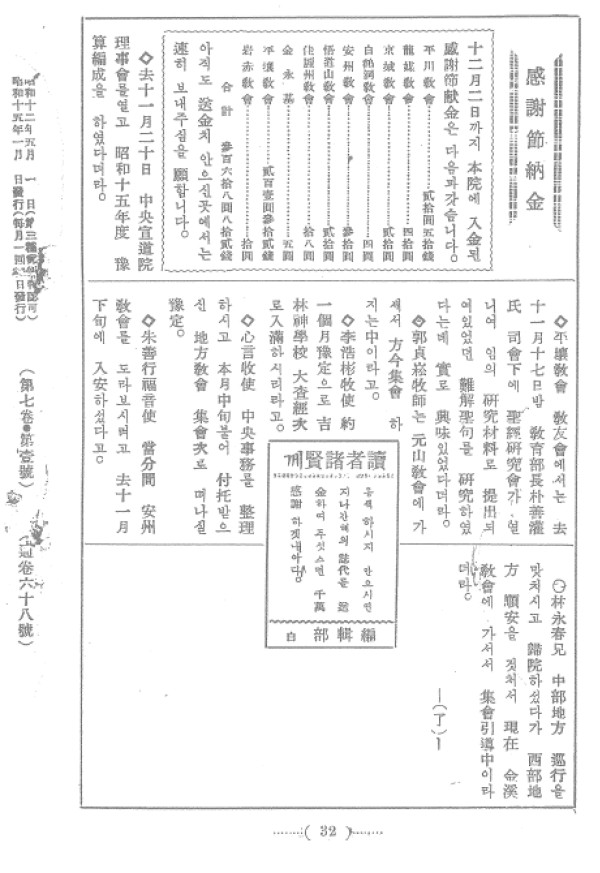 感謝節納金
十二月二日까지 本院에 入金된
感謝節献金은 다음과갓슴니다。
平川敎會 貳拾圓五拾錢
龍謀敎會 四拾圓
京城敎會 拾圓
自 敎會 四圓
安州敎會 參拾圓
悟道山敎會 貳拾圓
佳經州敎會 拾八圓
金永基 五圓
平壤敎會 貳百壹圓參拾貳錢
岩赤敎會 拾圓
合計 參百六拾八圓八拾貳錢
아직도 送金치 안으신곳에서는
速히 보내주심을 願합니다。
◇去十一月二十日 中央宣道院
理事會를열고 昭和十五年度 豫
算編成을 하엿다더라。
◇平壤敎會 敎友會에서는 去
十一月十七日밤 敎育部長朴善灌
氏 司會下에 聖經硏究會가 열
니여 임의 硏究材料로 提出되
여잇엇던 難解聖句를 硏究하엿
다는데 實로 興味잇엇다더라。
◇郭貞崧牧師는 元山敎會에가
셔서 方今集會 하
지는中이라고。
◇李浩彬牧使 約
一個月豫定으로 吉
林神學校 大査經次
로入滿하시리라고。
◇心言收使 中央事務를 整理
하시고 本月中旬붙어 付托받으
신 地方敎會 集會次로 떠나실
豫定。
◇朱善行福音使 當分間 安州
敎會를 도라보시려고 去十一月
下旬에 入安하섯다고。
讀者諸賢께
유해 하시지 안으시면
지나간해의 誌代를 送
金하여 주섯스면 千萬
感謝 하겟내이다。
編輯部 白
◇林永春兄 中部地方 巡行을
맛치시고 歸院하섯다가 西部地
方 順安을 것처서 現在 金溪
敎會에 가서서 集會引導中이라
더라。
—(了)—
昭和十二年五月 一日(第三種
昭和十五年一月 日發行(每月一回 日發行)
(第七卷●第壹號)
(通卷六十八號)
(32)